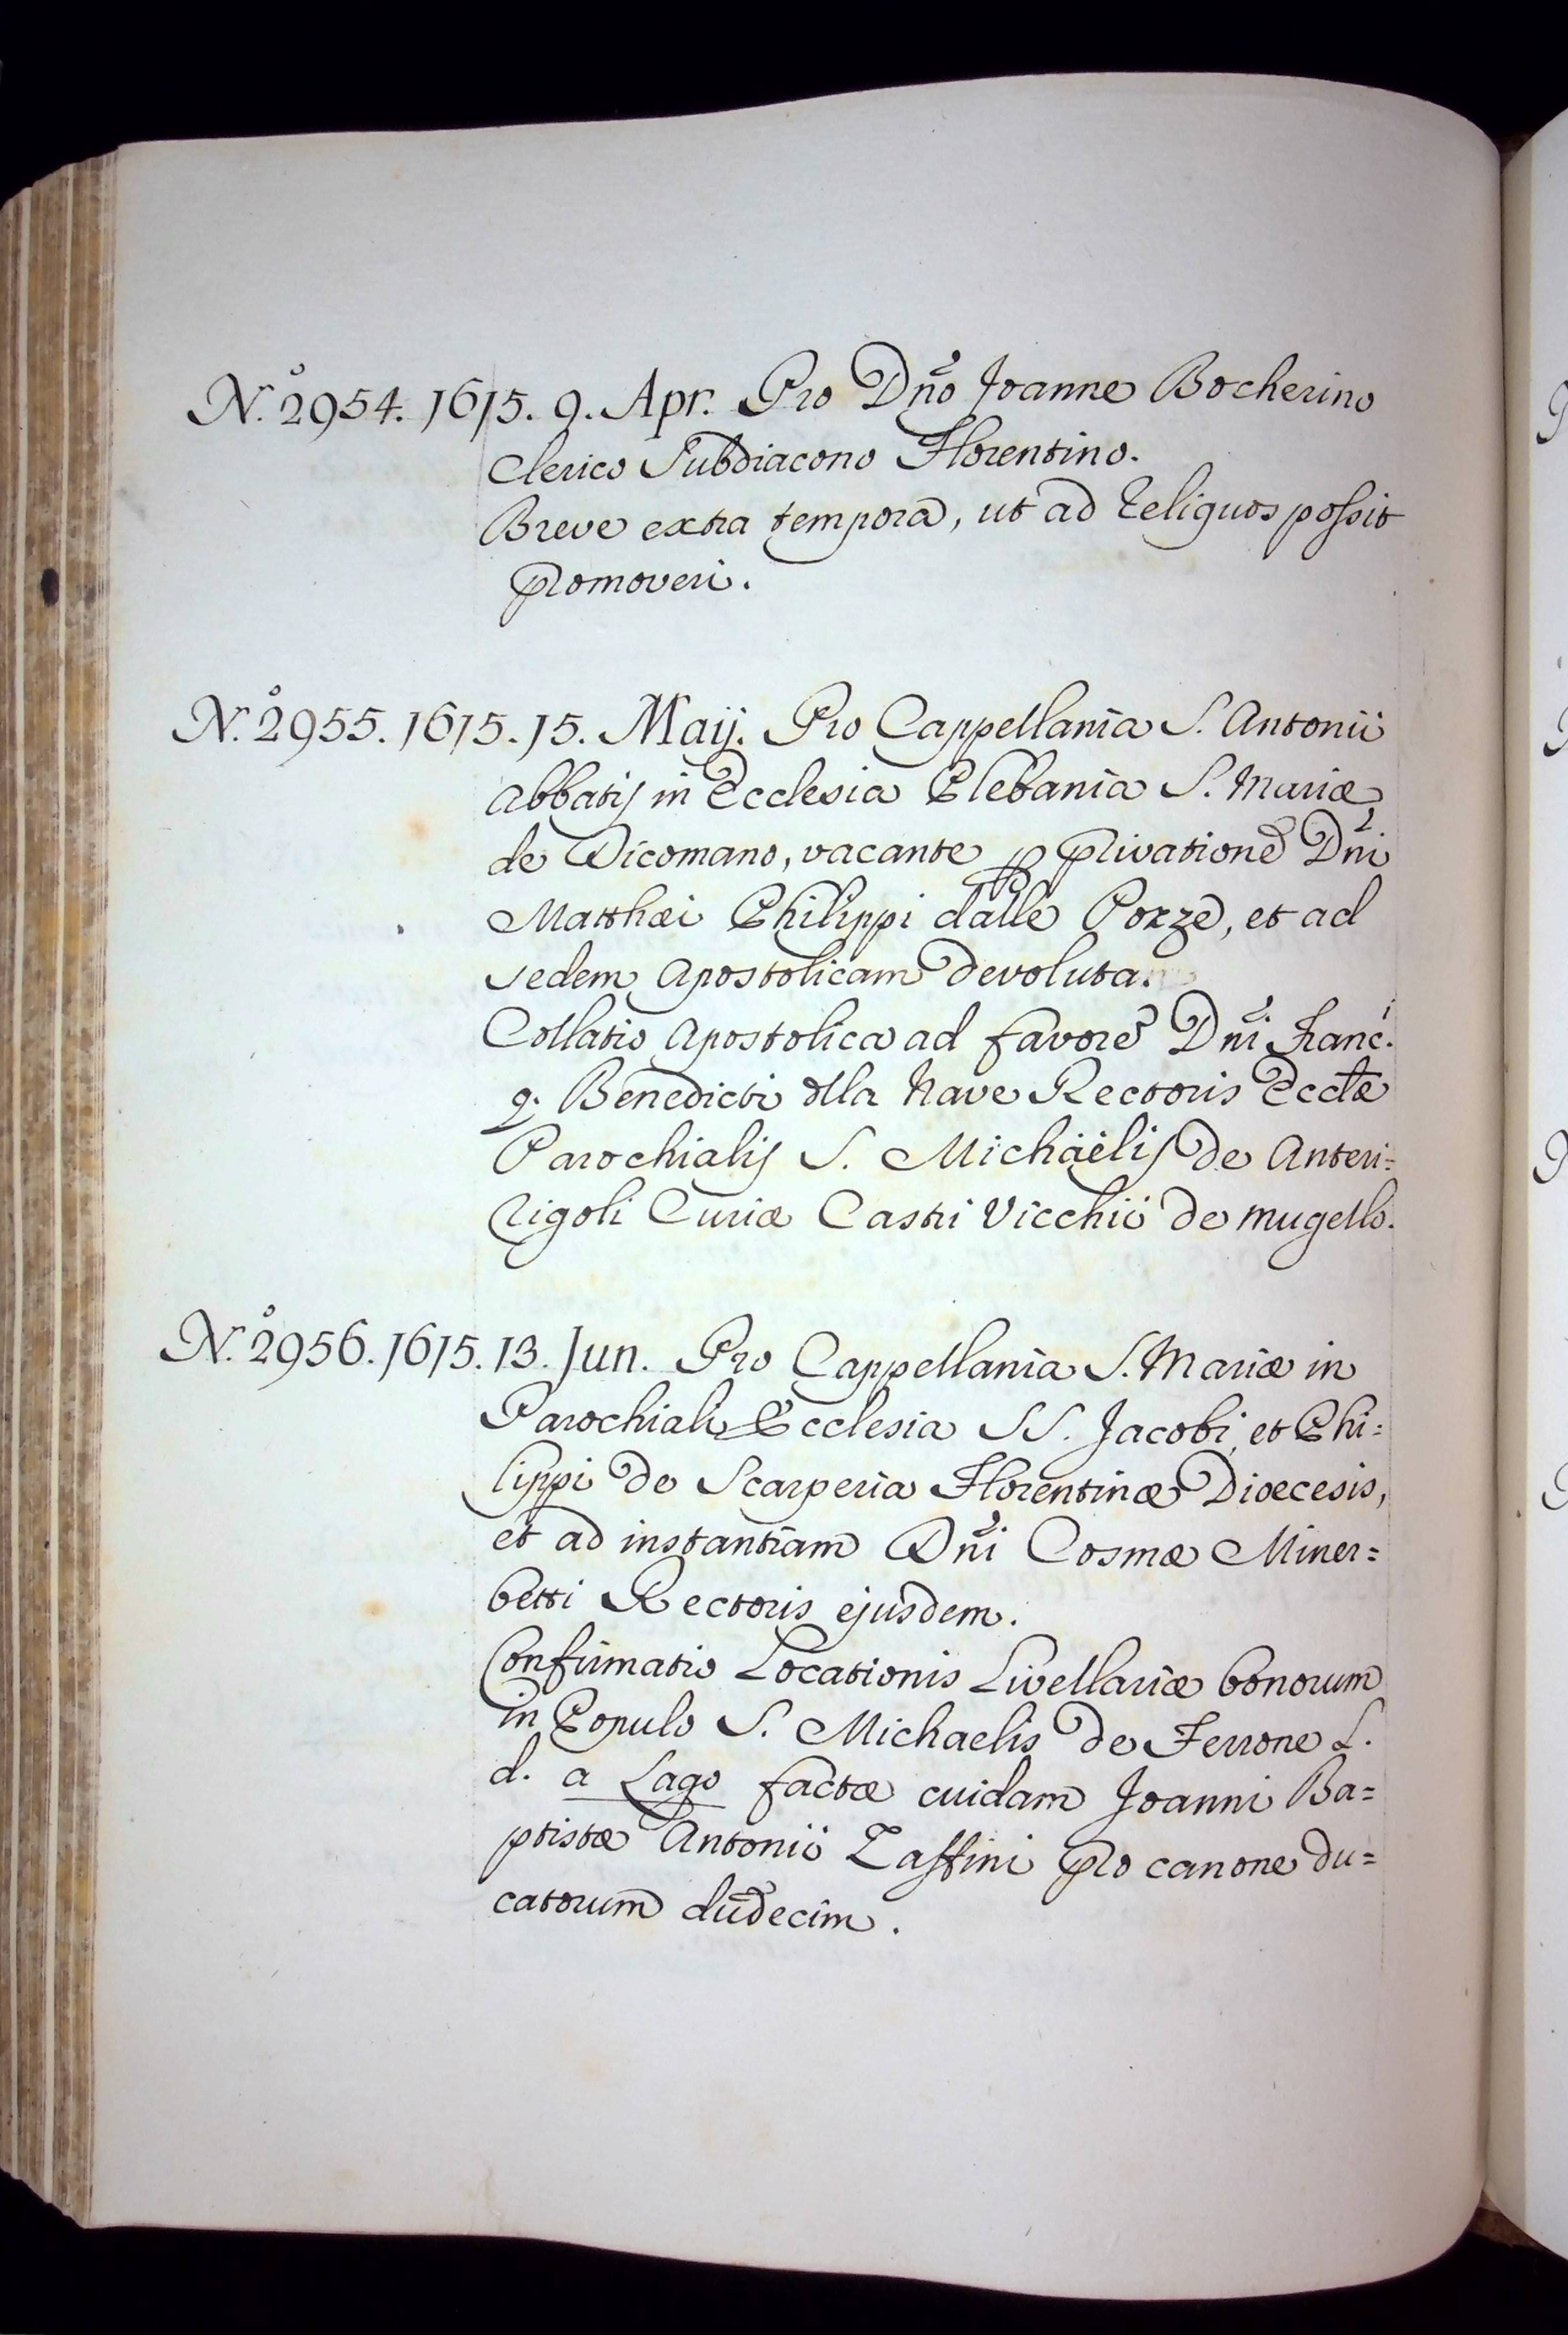 N.º 2954. 1615. 9. Apr. Pro Dño Joanne Bocherino
Clerico Subdiacono Florentino.
Breve extra tempora, ut ad reliquos possit
promoveri.
N.º 2955. 1615. 15. Maij. Pro Cappellania S. Antonii
Abbatis in Ecclesia Plebania S. Mariæ
de Dicomano, vacante p privatione Dñi
Matthæi Philippi dalle Pozze, et ad
sedem Apostolicam devoluta.
Collatio Apostolica ad favorē Dñi Franc.
q. Benedicti dlla Nave Rectoris Eccłæ
Parochialis S. Michäelis de Anteri=
rigoli Curiæ Castri Vicchii de Mugello.
N.º 2956. 1615. 13. Jun. Pro Cappellania S. Mariæ in
Parochiali Ecclesia SS. Jacobi, et Phi=
lippi de Scarperia Florentinæ Dioecesis,
et ad instantiam Dñi Cosmæ Miner=
betti Rectoris ejusdem.
Confirmatio Locationis Livellariæ bonorum
in Populo S. Michaelis de Ferrone L.
d. a Lago factæ cuidam Joanni Ba=
ptistæ Antonii Zaffini pro canone du=
catorum dudecim.